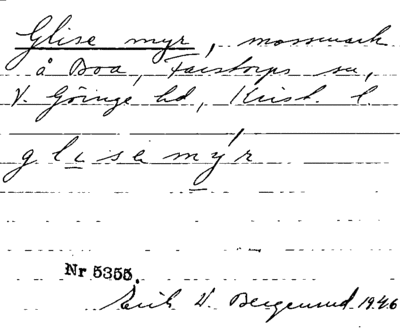 Glise myr, mossmark
å Boa, Farstorps sn,
V. Göinge hd, Krist. l.
glisemýr
Nr 5355.
Erik W. Bergenrud 1946